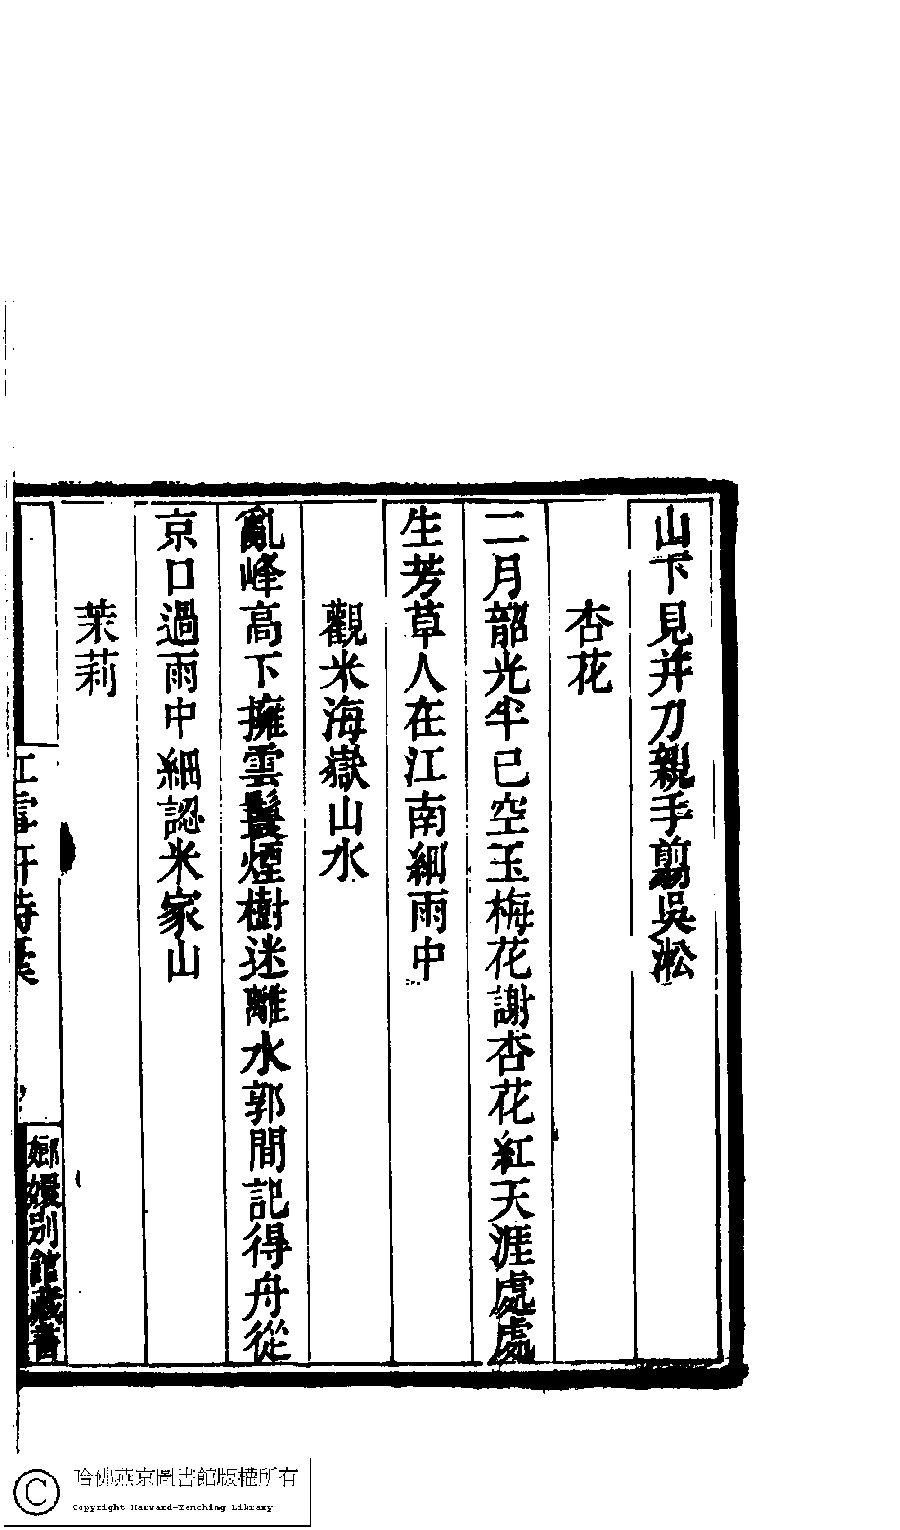 山下見并刀親手翦吳淞
杏花
二月韶光半已空玉梅花謝杏花紅天涯處處
生芳草人在江南細雨中
觀米海嶽山水
亂峰高下擁雲鬟煙樹迷離水郭間記得舟從
京口過雨中細認米家山
茉莉
嫏嬛別館藏書
哈佛燕京圖書館版權所有
Copyright Harvard-Yenching Library